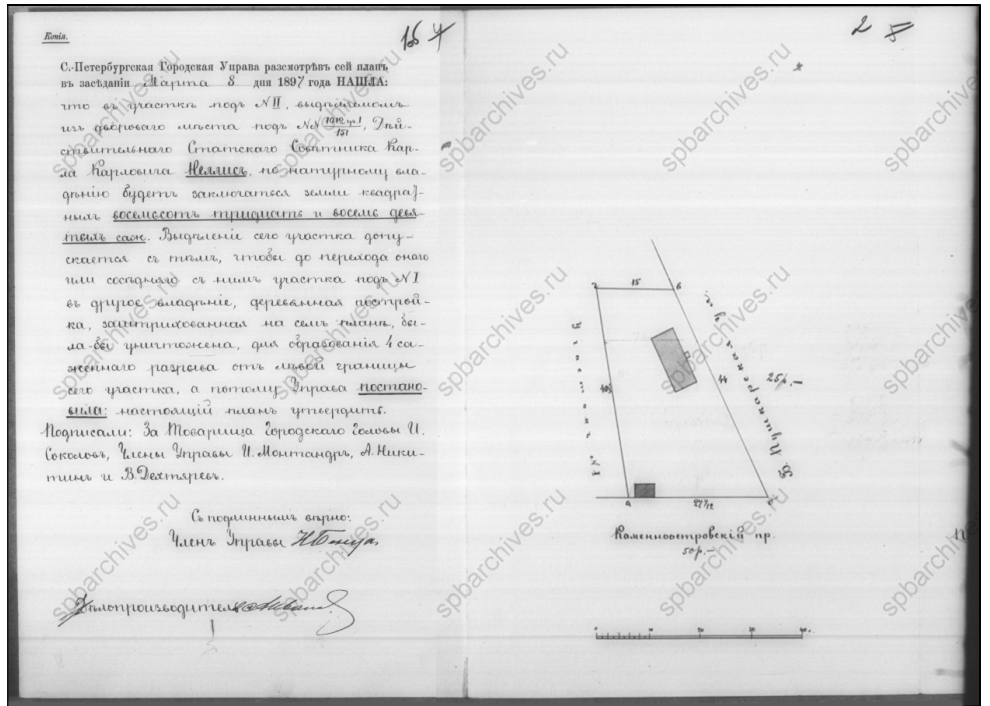 Копія.
С.-Петербургская Городская Управа разсмотрѣвъ сей планъ
въ засѣданіи Марта 8 дня 1897 года НАШЛА:
что въ участкѣ подъ № II, выдѣляемомъ
изъ дворового мѣста подъ №№ 151, Дѣй-
ствительнаго Статскаго Совѣтника Кар-
ла Карловича Неллисъ, по натурному вла-
дѣнію будетъ заключаться земли квадрат-
ныхъ восемьсотъ тридцать и восемь девя-
тыхъ саж. Выдѣленіе сего участка допу-
скается съ тѣмъ, чтобы до перехода онаго
или сосѣдняго съ нимъ участка подъ № I
въ другое владѣніе, деревянная построй-
ка, заштрихованная на семъ планѣ, бы-
ла-бы уничтожена, для образованія 4 са-
женнаго разрыва отъ лѣвой границы
сего участка, а потому Управа постано-
вила: настоящій планъ утвердить.
Подписали: За Товарища Городскаго Головы И.
Соколовъ, Члены Управы И. Монтандръ, А. Ники-
тинъ и В. Дехтяревъ.
Съ подлиннымъ вѣрно:
Членъ Управы
Дѣлопроизводитель
2 8
15
Б. Пушкарская ул.
25р.-
44
Каменноостровскій пр.
50р.-
0 10 20 30 40 с.
spbarchives.ru